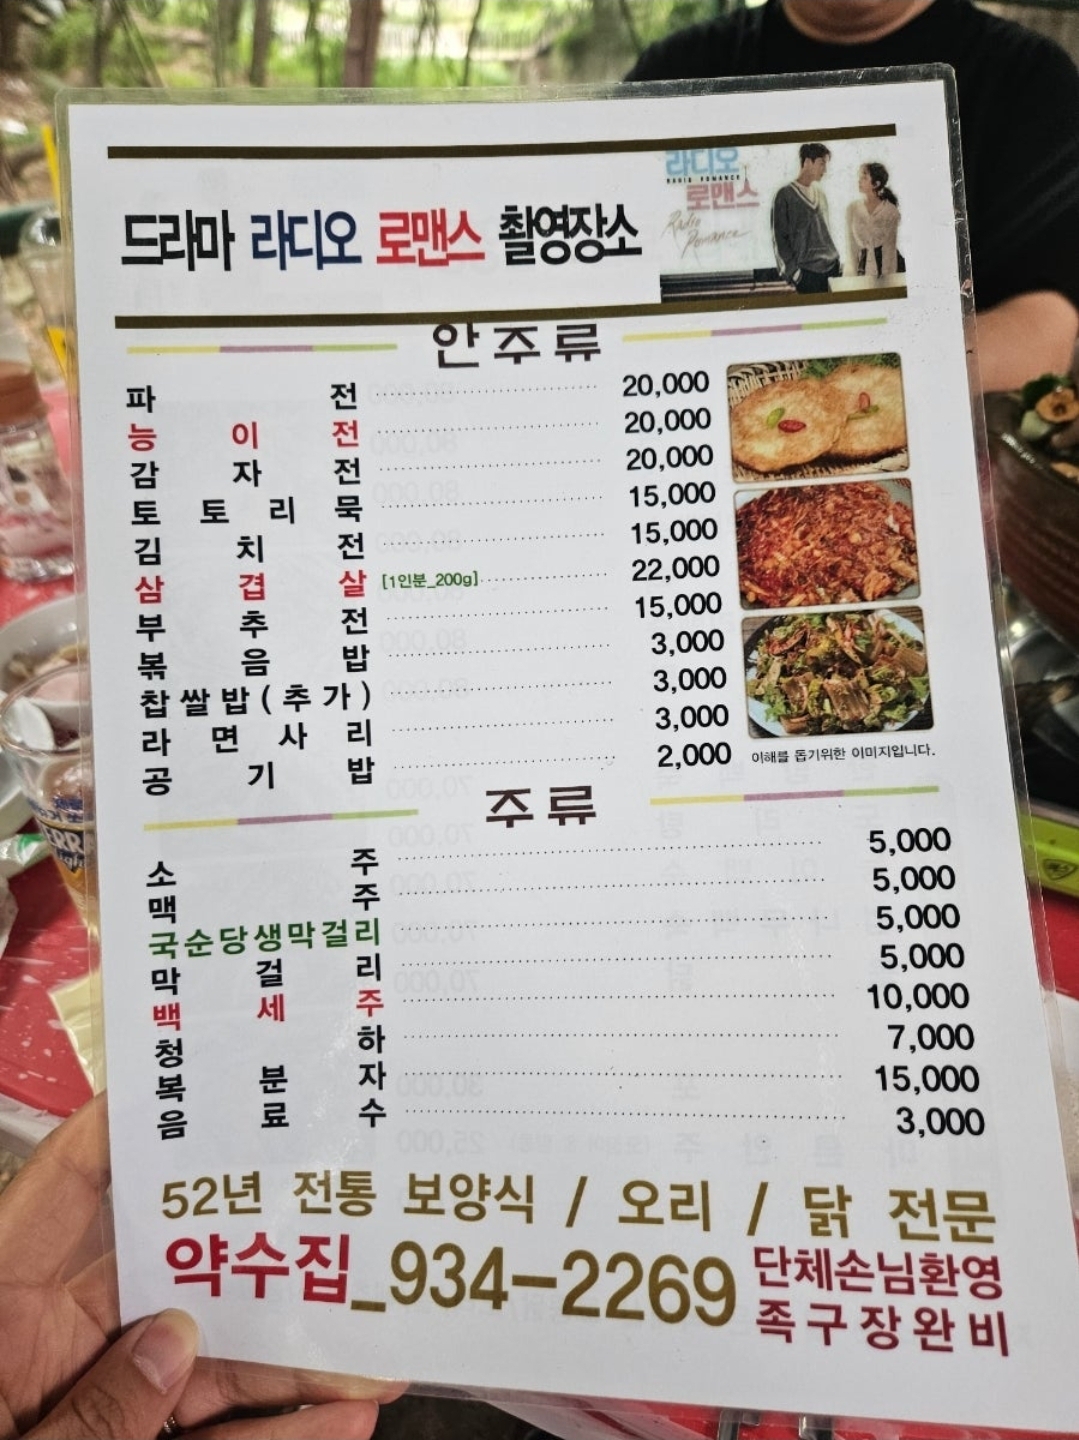 드라마 라디오 로맨스 촬영장소
라디오
RADIO ROMANCE
로맨스
Radio
Romance
안주류
파전 20,000
능이전 20,000
감자전 20,000
토토리묵 15,000
김치전 15,000
삼겹살 [1인분_200g] 22,000
부추전 15,000
볶음밥 3,000
찹쌀밥(추가) 3,000
라면사리 3,000
공기밥 2,000
이해를 돕기위한 이미지입니다.
주류
소주 5,000
맥주 5,000
국순당생막걸리 5,000
막걸리 5,000
백세주 10,000
청하 7,000
복분자 15,000
음료수 3,000
52년 전통 보양식 / 오리 / 닭 전문
약수집_934-2269
단체손님환영
족구장완비